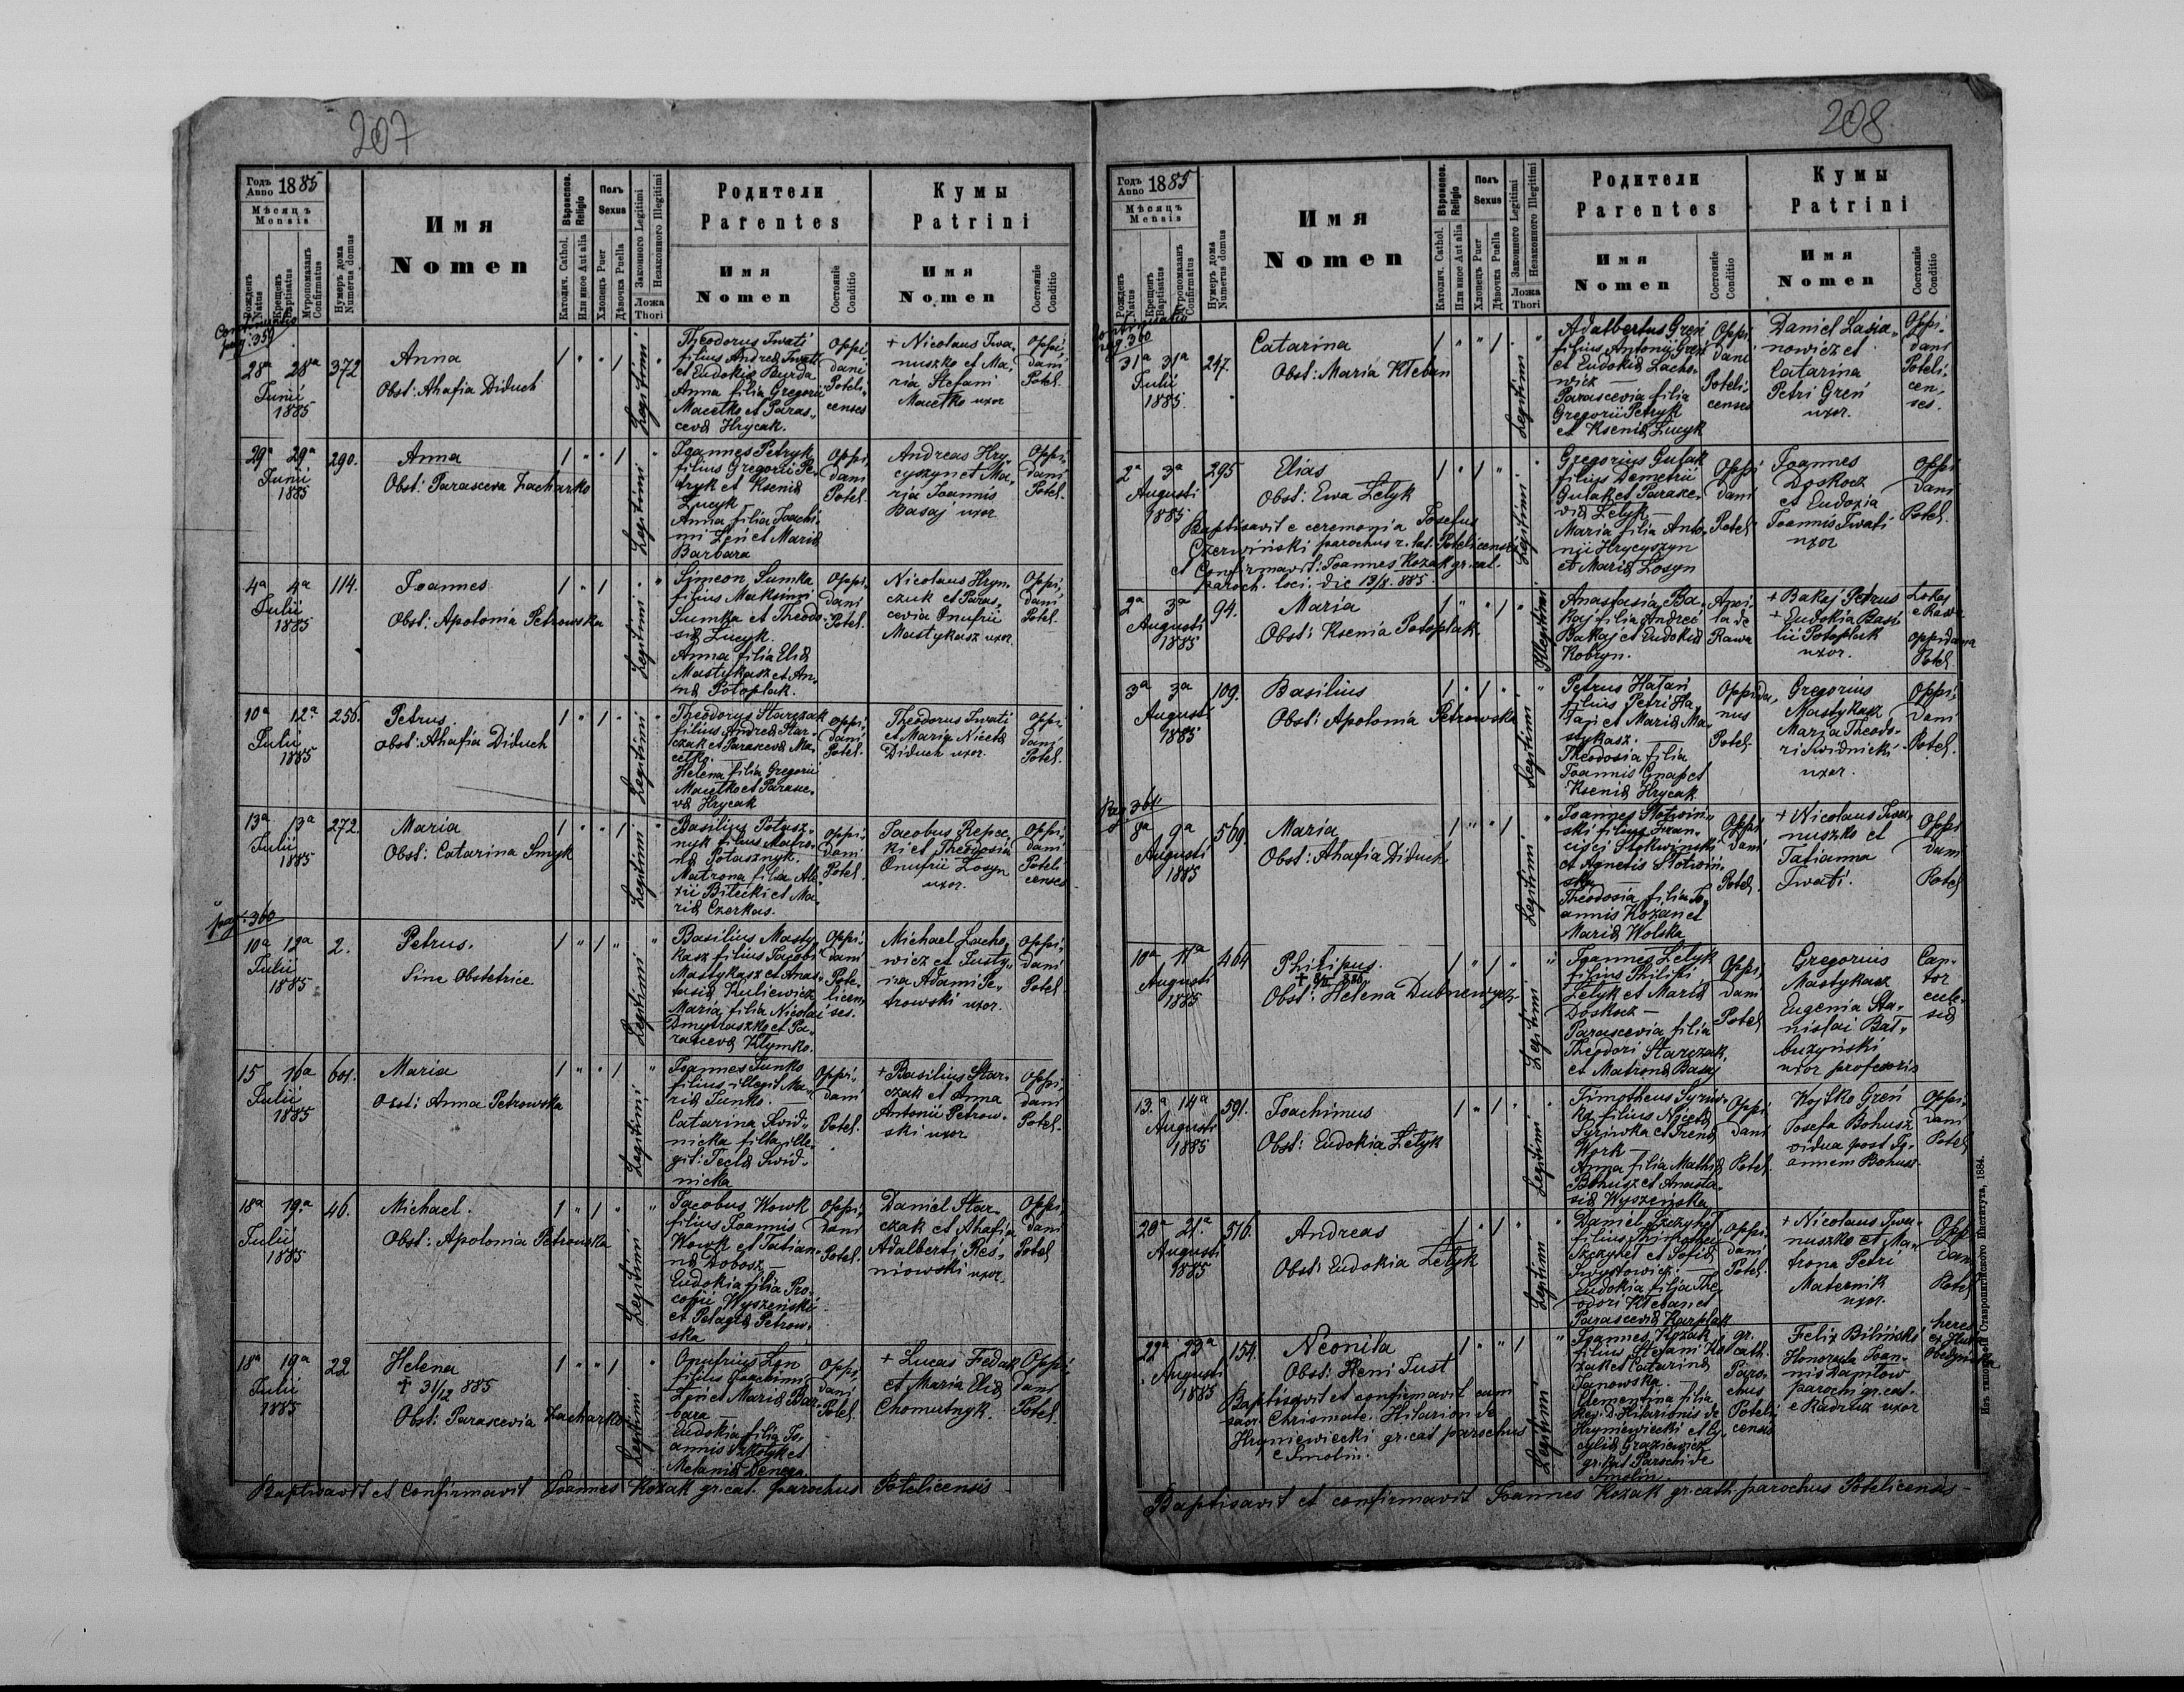 207
Годъ Anno 1885
Мѣсяцъ Mensis
Рожденъ Natus
Крещенъ Baptisatus
Мѵропомазанъ Confirmatus
Нумеръ дома Numerus domus
Имя Nomen
Вѣроиспов. Religio
Католич. Cathol.
Или иное Aut alia
Полъ Sexus
Хлопецъ Puer
Дѣвочка Puella
Законного Legitimi
Незаконного Illegitimi
Ложа Thori
Родители Parentes
Имя Nomen
Состояніе Conditio
Кумы Patrini
Имя Nomen
Состояніе Conditio
pag. 359
28ª 28ª Junii 1885
372
Anna
Obst: Ahafia Diduch
Legitimi
Theodorus Iwati
filius Andreæ Iwati
et Eudokiæ Burda
Anna filia Gregorii
Macetko et Paras„
cevæ Hrycak.
Oppi„
dani
Poteli„
censes
+ Nicolaus Iwa„
nuszko et Ma„
ria Stefani
Macetko uxor
Oppi„
dani
Potel.
29ª 29ª Junii 1885
290.
Anna
Obst: Parasceva Zacharko
Legitimi
Joannes Petryk
filius Gregorii Pe„
tryk et Kseniæ
Lucyk
Anna filia Joachi„
mi Leń et Mariæ
Barbara
Oppi„
dani
Potel.
Andreas Hry„
cyszyn et Ma„
ria Joannis
Basaj uxor
Oppi„
dani
Potel.
4ª 4ª Julii 1885
114.
Joannes
Obst: Apolonia Petrowska
Legitimi
Simeon Sumka
filius Maksimi
Sumka et Theodo„
siæ Lucyk.
Anna filia Eliæ
Mastykasz et An„
næ Potoplak.
Oppi„
dani
Potel.
Nicolaus Hryn„
czuk et Paras„
cevia Onufrii
Mastykasz uxor.
Oppi„
dani
Potel.
10ª 12ª Julii 1885
256.
Petrus.
Obst: Ahafia Diduch
Legitimi
Theodorus Starczak
filius Andreæ Star„
czak et Parascevæ Ma„
cetko.
Helena filia Gregorii
Macetko et Parasce„
væ Hrycak
Oppi„
dani
Potel.
Theodorus Iwati
et Maria Nicetæ
Diduch uxor.
Oppi„
dani
Potel.
13ª 13ª Julii 1885
272.
Maria
Obst: Catarina Smyk
Legitimi
Basilius Potasz„
nyk filius Matro„
næ Potasznyk.
Matrona filia Ale„
xii Bilecki et Ma„
riæ Czerkas.
Oppi„
dani
Potel.
Jacobus Repec„
ki et Theodosia
Onufrii Losyn
uxor.
Oppi„
dani
Poteli
censes
pag. 360
10ª 12ª Julii 1885
2.
Petrus.
Sine Obstetrice
Legitimi
Basilius Masty„
kasz filius Jacobi
Mastykasz et Anas„
tasiæ Kuliewicz
Maria filia Nicolai
Dmytraszko et Pa„
rascevæ Klymko.
Oppi„
dani
Pote„
licen„
ses.
Michael Lacho„
wicz et Justy„
na Adami Pe„
trowski uxor.
Oppi„
dani
Potel
15 16ª Julii 1885
601.
Maria
Obst: Anna Petrowska
Legitimi
Joannes Junko
filius illegit: Ma„
riæ Junko.
Catarina Swid„
nicka filia ille„
git: Teclæ Swid„
nicka
Oppi„
dani
Potel.
+ Basilius Star„
czak et Anna
Antonii Petrow„
ski uxor
Oppi„
dani
Potel.
18ª 19ª Julii 1885
46.
Michael.
Obst: Apolonia Petrowska
Legitimi
Jacobus Wowk
filius Joannis
Wowk et Tatian„
næ Dobosz —
Eudokia filia Pro„
copii Wyszeński
et Pelagiæ Petrow„
ska
Oppi„
dani
Potel.
Daniel Star„
czak et Ahafia
Adalberti Res„
niowski uxor.
Oppi„
dani
Potel
18ª 19ª Julii 1885
22
Helena
+ 31/12 885
Obst: Parascevia Zacharko
Legitimi
Onufrius Leń
filius Joachimi
Leń et Mariæ Bar„
bara —
Eudokia filia Jo„
annis
Melaniæ Denega.
Oppi„
dani
Potel.
+ Lucas Fedak
et Maria Eliæ
Chomutnyk.
Oppi„
dani
Potel.
Baptisavit et Confirmavit Joannes Kozak gr.cat. parochus Potelicensis
208
Годъ Anno 1885
Мѣсяцъ Mensis
Рожденъ Natus
Крещенъ Baptisatus
Мѵропомазанъ Confirmatus
Нумеръ дома Numerus domus
Имя Nomen
Вѣроиспов. Religio
Католич. Cathol.
Или иное Aut alia
Полъ Sexus
Хлопецъ Puer
Дѣвочка Puella
Законного Legitimi
Незаконного Illegitimi
Ложа Thori
Родители Parentes
Имя Nomen
Состояніе Conditio
Кумы Patrini
Имя Nomen
Состояніе Conditio
pag. 360
31ª 31ª Julii 1885.
247.
Catarina
Obst: Maria Kłeban
Legitimi
Adalbertus Greń
filius Antonii Greń
et Eudokiæ Lacho„
wicz —
Parascevia filia
Gregorii Petryk
et Kseniæ Lucyk
Oppi„
dani
Poteli„
censes
Daniel Lasia„
nowicz et
Catarina
Petri Greń
uxor.
Oppi„
dani
Poteli„
cen„
ses.
2ª 3ª Augusti 1885
295
Elias
Obst: Ewa Lelyk
Baptisavit e ceremonia Josefus
Czerwiński parochus r. lat. Potelicensis
et Confirmavit: Joannes Kozak gr.cat.
paroch. loci. die 19/8. 885.
Legitimi
Gregorius Gulak
filius Demetrii
Gulak et Parasce„
viæ Lelyk —
Maria filia Anto„
nii Hrycyszyn
et Mariæ Losyn
Oppi„
dani
Potel.
Joannes
Doskocz
et Eudoxia
Joannis Iwati
uxor
Oppi
dani
Potel.
2ª 3ª Augusti 1885
94.
Maria
Obst: Ksenia Potoplak.
Illegitimi
Anastasia Ba„
kaj filia Andreæ
Bakaj et Eudokiæ
Kobryn.
Anci„
la de
Rawa
+ Bakaj Petrus
+ Eudokia Basi„
lii Potoplak
uxor.
Lokaj
e Rawa
oppidana
Potel.
3ª 3ª Augusti 1885
109.
Basilius
Obst: Apolonia Petrowska
Legitimi
Petrus Hałan
filius Petri Ha„
łan et Mariæ Ma„
stykasz. —
Theodosia filia
Joannis Gnap et
Kseniæ Hrycak
Oppida„
nus
Potel.
Gregorius
Mastykasz
Maria Theodo„
ri Swidnicki
uxor.
Oppi„
dani
Potel.
Pag. 361
8ª 9ª Augusti 1885
569.
Maria
Obst: Ahafia Diduch
Legitimi
Joannes Słotwin„
ski filius Fran„
cisci Słotwinski
et Agnetis Słotwin„
ska
Theodosia filia Jo„
annis Kozan et
Mariæ Wolska
Oppi„
dani
Potel.
+ Nicolaus Iwa„
nuszko et
Tatianna
Iwati.
Oppi
dani
Potel
10ª 11ª Augusti 1885
464
Philipus.
Obst: Helena Dubnewycz
Legitimi
Joannes Lelyk
filius Philipi
Lelyk et Mariæ
Doskocz —
Parascevia filia
Theodori Starczak,
et Matronæ Basaj
Oppi„
dani
Potel
Gregorius
Mastykasz
Eugenia Sta„
nislai Bał„
buzyński
uxor profesoris
Can„
tor
eccle„
siæ
13.ª 14ª Augusti 1885
591.
Joachimus
Obst: Eudokia Lelyk
Legitimi
Timotheus Syriw„
ka filius Nicetæ
Syriwka et Irenæ
Work —
Anna filia Mathiæ
Bohusz et Anasta„
siæ Wyszeńska
Oppi„
dani
Potel.
Wojtko Greń
Josefa Bohusz
vidua post Jo„
annem Bohusz
Oppi„
dani
Potel
20ª 21.ª Augusti 1885
516.
Andreas
Obst: Eudokia Lelyk
Legitimi
Daniel Szczyheł
filius Thimothei
Szczyheł et Sofiæ
Swystowicz. —
Eudokia filia The„
odori Kłeban et
Parasceviæ Karplak
Oppi„
dani
Potel.
+ Nicolaus Iwa„
nuszko et Ma„
trona Petri
Maternik
uxor.
Opp
dani
Potel
22ª 23ª Augusti 1885
154.
Neonila
Obst: Heni Just
Baptisavit et confirmavit cum
sacr. Chrismate. Hilarion de
Hryniewiecki gr.cat parochus
e Smolin.
Legitimi
Joannes Kozak
filius Stefani Ko„
zak et Catarinæ
Janowska. —
Clementina filia
Rev. D. Hilarionis de
Hryniewiecki et
Graziewicz
gr.kat Parochi de
Smolin.
gr.
cath.
Paro„
chus
Poteli„
censis
Felix Biliński
Honorata Joan„
nis Daniłow
parochi gr.cat.
e Radruz uxor
Baptisavit et confirmavit Joannes Kozak gr.cath. parochus Potelicensis —
Изъ типографіи Ставропигійского Института, 1884.